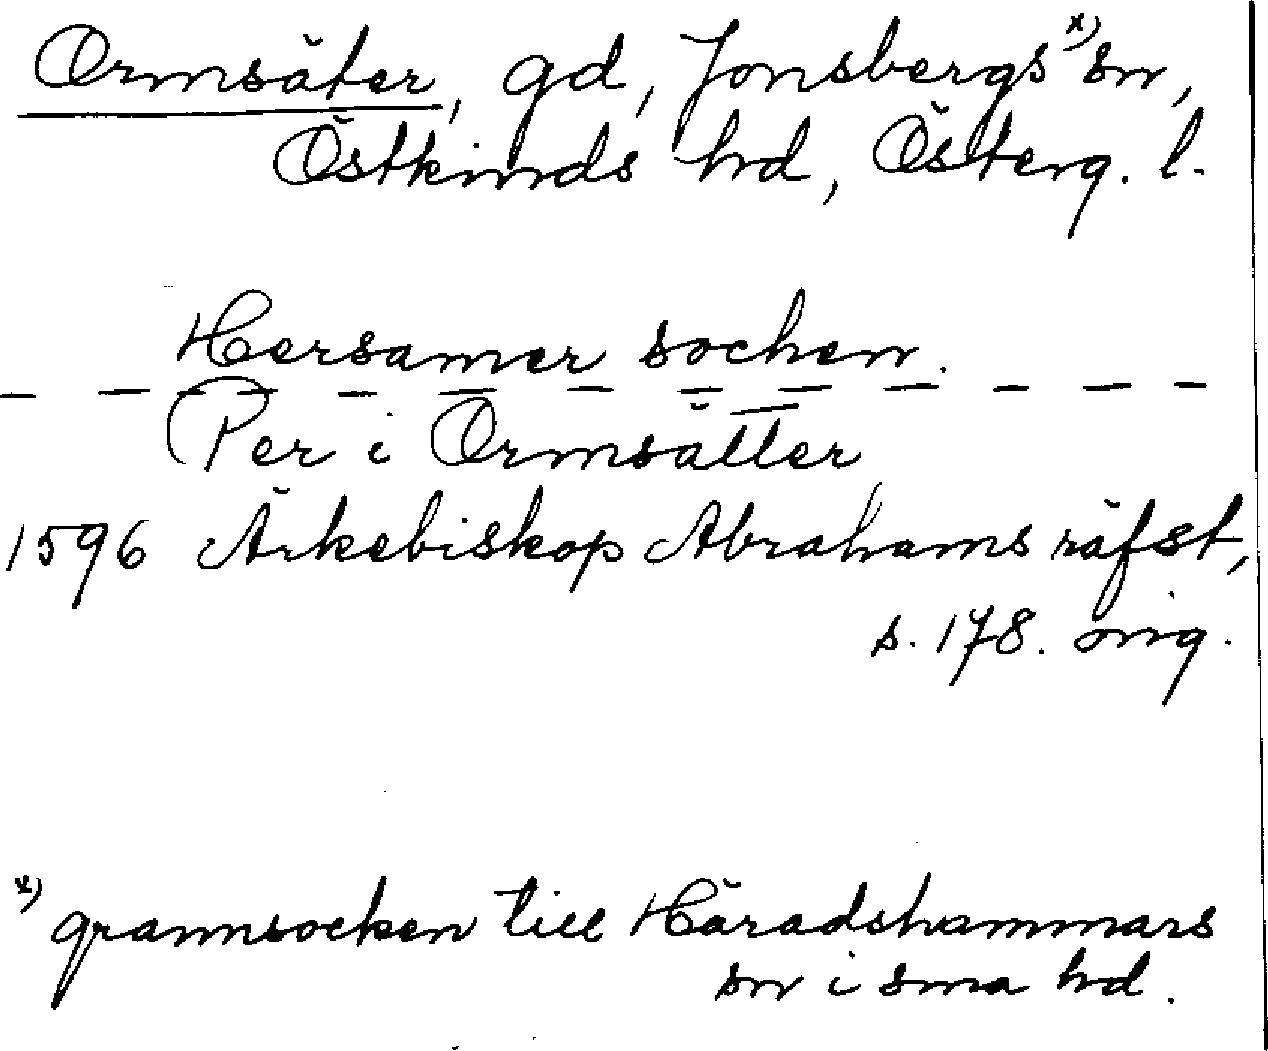 Ormsäter, gd, Jonsbergs x) sn,
Östkinds hd, Österg. l.
Hersamer sochen.
Per i Ormsätter
1596 Ärkebiskop Abrahams räfst,
s. 178. orig.
x) grannsocken till Häradshammars
sn i sma hd.